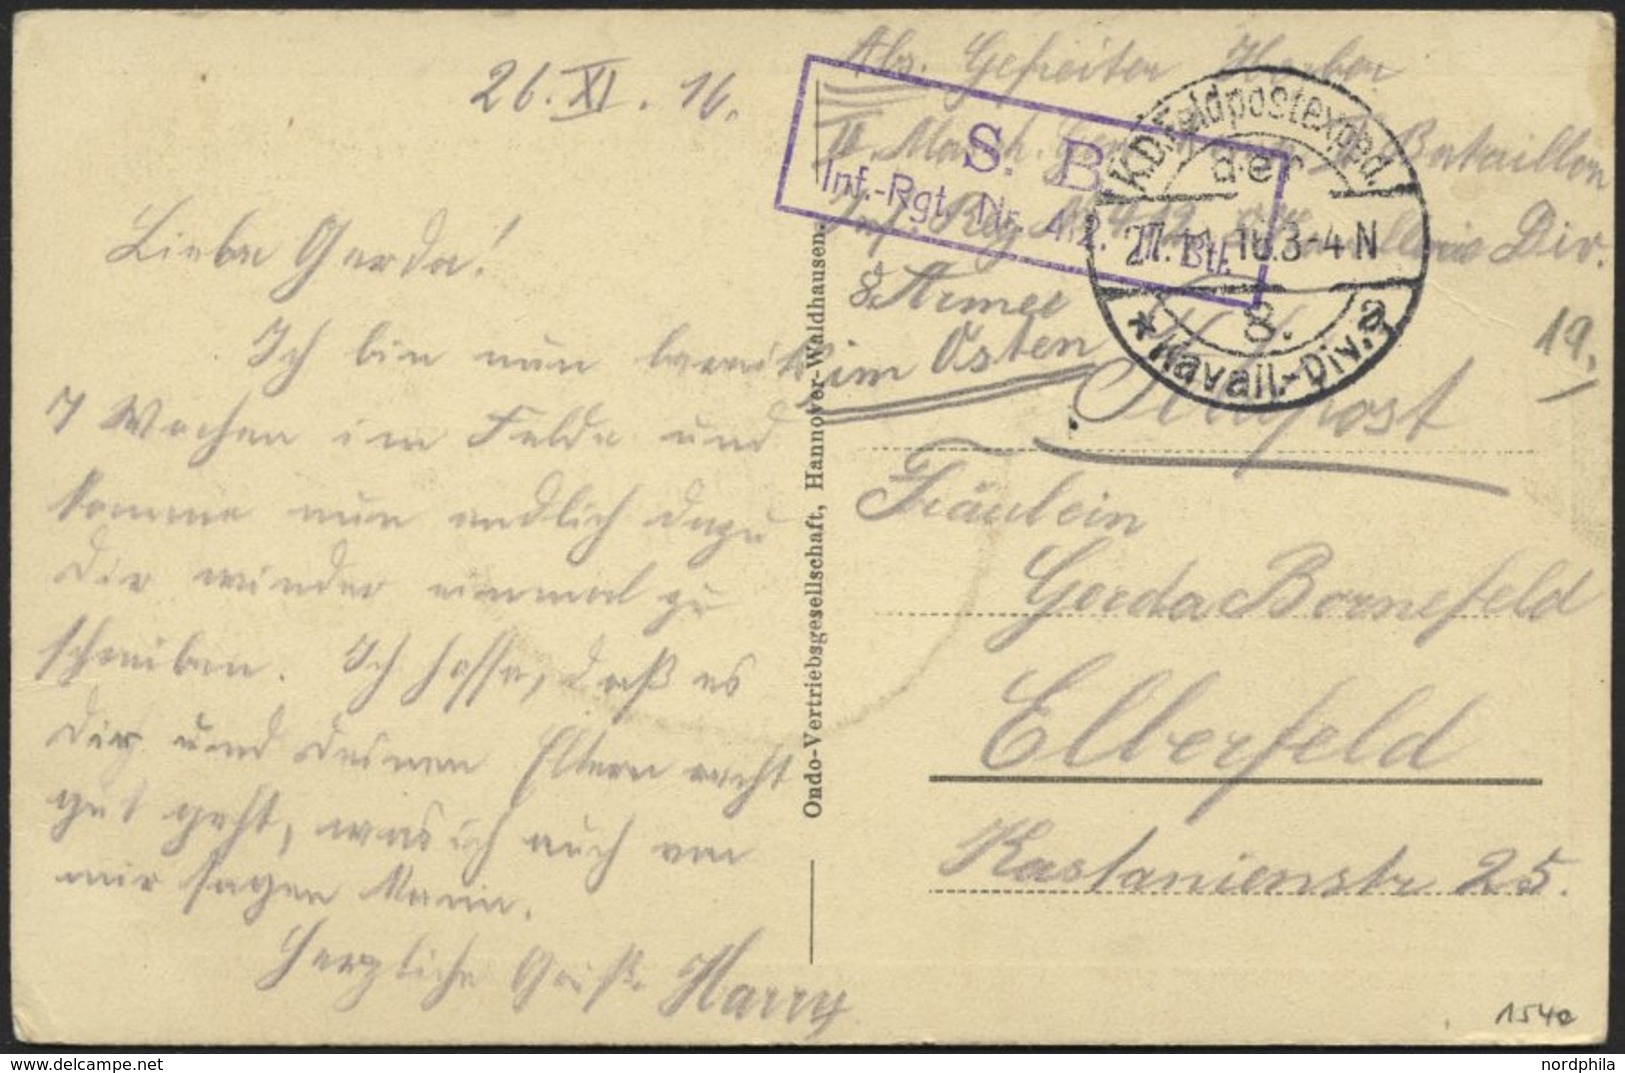 26. XI. 16.
Liebe Gerda!
Ich bin nun bereits
7 Wochen im Felde und
komme nun endlich dazu
Dir wieder einmal zu
schreiben. Ich hoffe, daß es
Dir und Deinen Eltern recht
gut geht, was ich auch von
mir sagen kann.
Herzliche Grüße Harry
Ondo-Vertriebsgesellschaft, Hannover-Waldhausen.
Abs. Gefreiter
Bataillon
Inf. Reg. 412 Div.
8. Armee
im Osten
S. B.
Inf.-Rgt. Nr. 412. II. Btl.
K.D.Feldpostexped.
der
27.11.16.3-4N
8.
* Kavall.-Div. a
19.
Feldpost
Fräulein
Gerda Bornefeld
Elberfeld
Kastanienstr 25.
154e
delcampe.net
nordphila